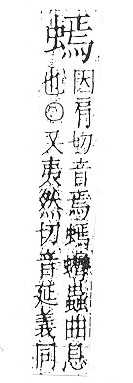 䗡
因肩切音焉䗡蟺蟲曲息
也◯又夷然切音延義同